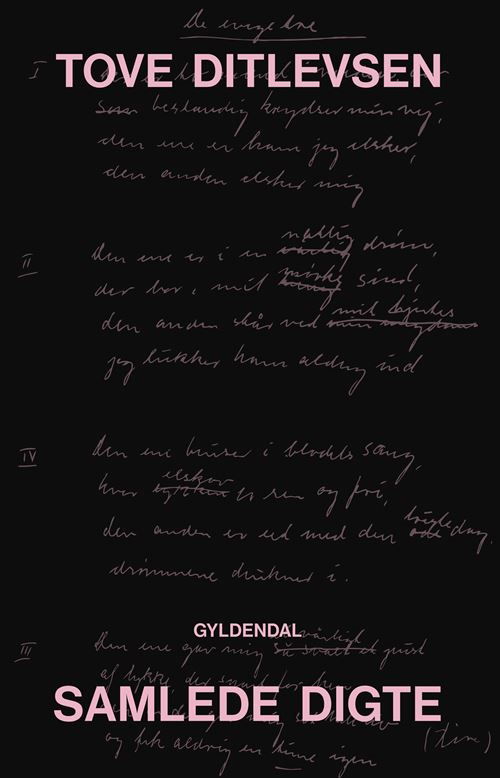 De evige tre
I
TOVE DITLEVSEN
bestandig krydser min vej,
den ene er ham jeg elsker,
den anden elsker mig
II
Den ene er i en natlig drøm,
der bor i mit mørke sind,
den anden står ved mit hjertes
jeg lukker ham aldrig ind
IV
Den ene bruser i blodets sang,
hvor elskov er ren og fri,
den anden er eet med den dag,
drømmene drukner i.
GYLDENDAL
III
Den ene gav mig et pust
af lykke, der snart
SAMLEDE DIGTE
og fik aldrig en time igen
(Tove)